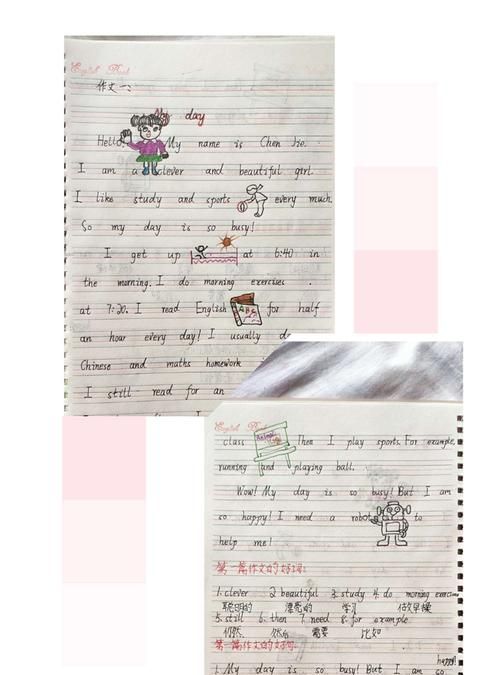 English Book
作文一:
My day
Hello! My name is Chen Jie.
I am a clever and beautiful girl.
I like study and sports every much.
So my day is so busy!
I get up at 6:40 in
the morning. I do morning exercises
at 7:20. I read English ABC for half
an hour every day! I usually do
Chinese and maths homework
I still read for an
English Book
class Then I play sports. For example,
running and playing ball.
Wow! My day is so busy! But I am
so happy! I need a robot to
help me!
第一篇作文的好词:
1. clever 2. beautiful 3. study 4. do morning exercises
聪明的 漂亮的 学习 做早操
5. still 6. then 7. need 8. for example
仍然 然后 需要 比如
第一篇作文的好句:
happy!
1. My day is so busy! But I am so